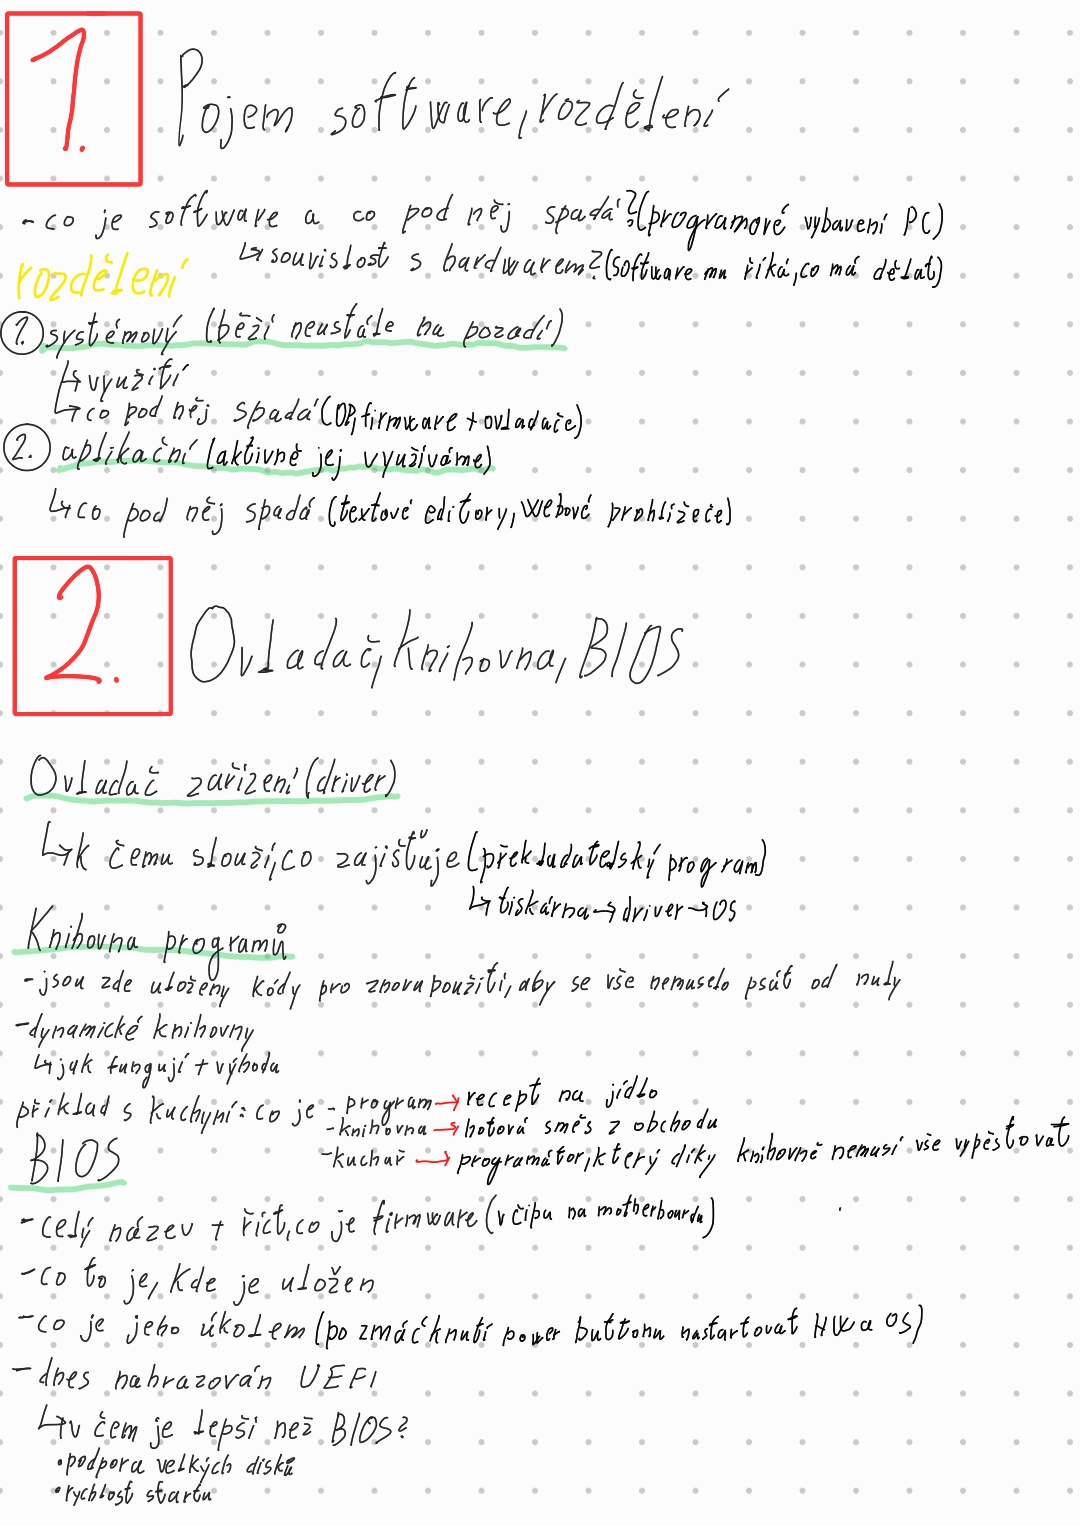 1. Pojem software, rozdělení
- co je software a co pod něj spadá? (programové vybavení PC)
↳ souvislost s hardwarem? (software mu říká, co má dělat)
rozdělení
1. systémový (běží neustále na pozadí)
↳ využití
↳ co pod něj spadá (OP, firmware + ovladače)
2. aplikační (aktivně jej využíváme)
↳ co pod něj spadá (textové editory, webové prohlížeče)
2. Ovladač, knihovna, BIOS
Ovladač zařízení (driver)
↳ k čemu slouží, co zajišťuje (překladatelský program)
↳ tiskárna → driver → OS
Knihovna programů
- jsou zde uloženy kódy pro znovupoužití, aby se vše nemuselo psát od nuly
- dynamické knihovny
↳ jak fungují + výhoda
příklad s kuchyní: co je - program → recept na jídlo
- knihovna → hotová směs z obchodu
- kuchař → programátor, který díky knihovně nemusí vše vypěstovat
BIOS
- celý název + říct, co je firmware (v čipu na motherboardu)
- co to je, kde je uložen
- co je jeho úkolem (po zmáčknutí power buttonu nastartovat HW a OS)
- dnes nahrazován UEFI
↳ v čem je lepší než BIOS?
• podpora velkých disků
• rychlost startu